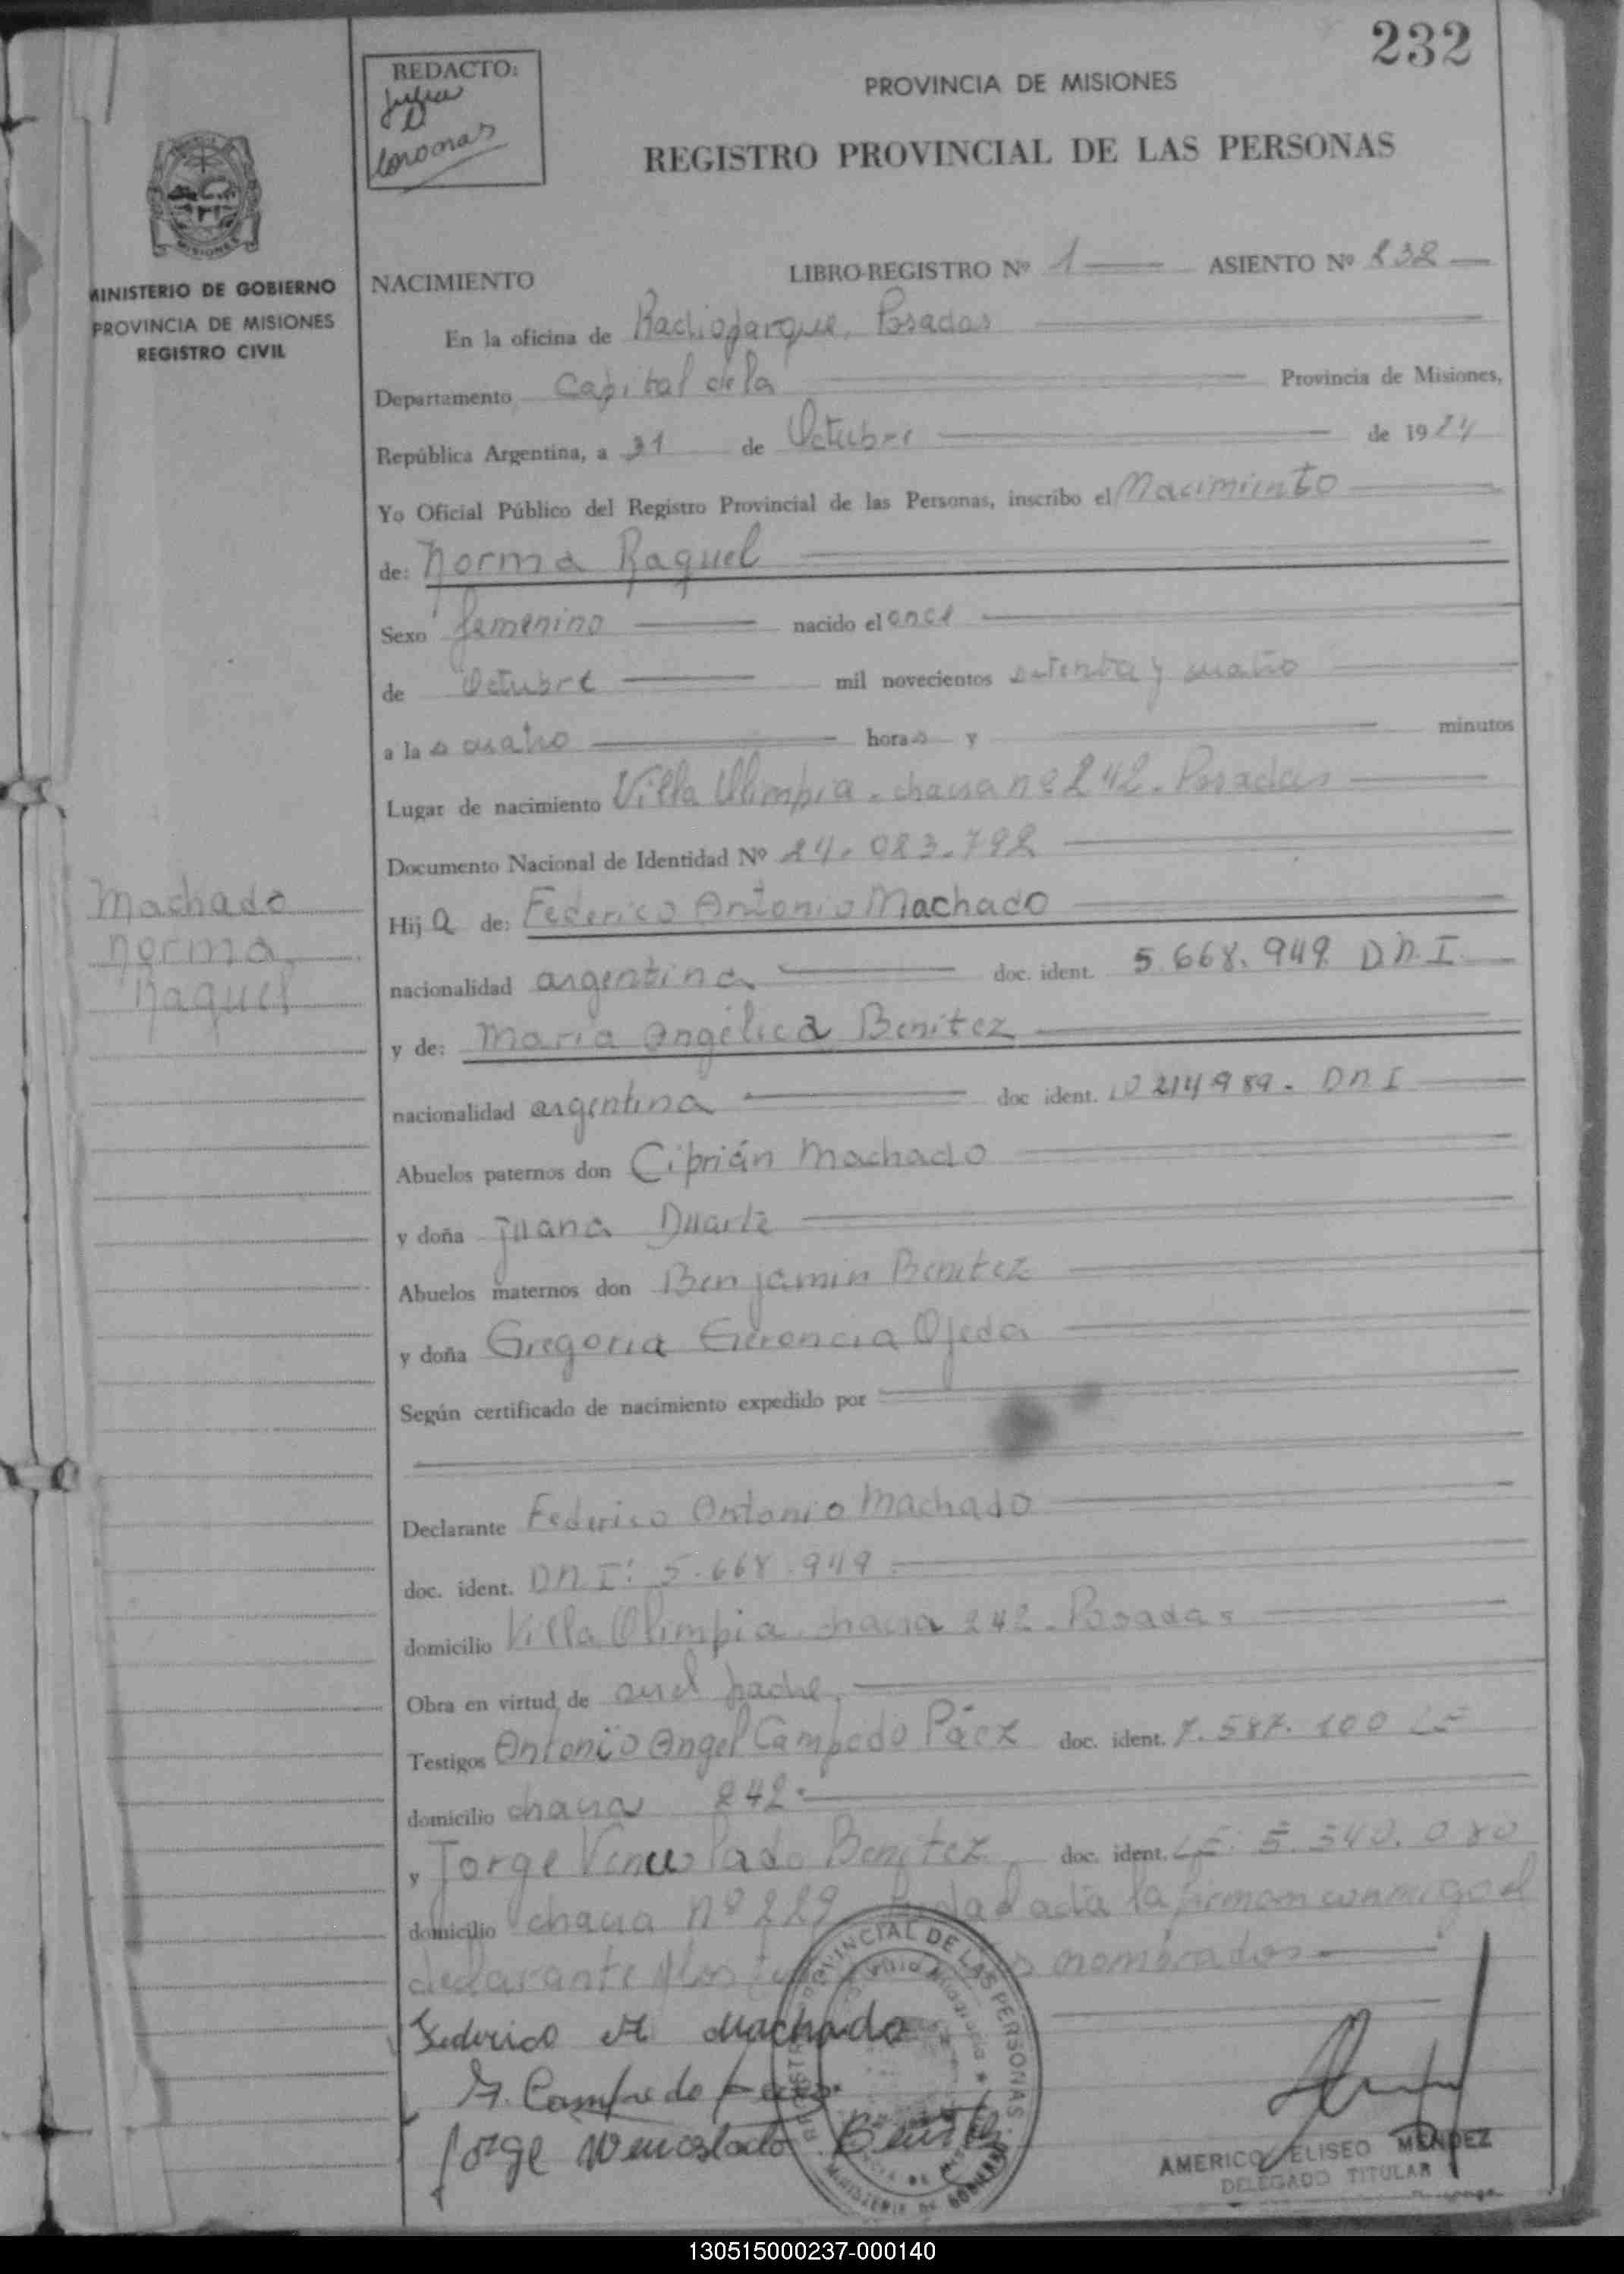 232
REDACTO:
Julia
D
Coromas
PROVINCIA DE MISIONES
REGISTRO PROVINCIAL DE LAS PERSONAS
MISIONES
MINISTERIO DE GOBIERNO
PROVINCIA DE MISIONES
REGISTRO CIVIL
NACIMIENTO LIBRO-REGISTRO Nº 1 ASIENTO Nº 232
En la oficina de Radioparque, Posadas
Departamento Capital de la Provincia de Misiones,
República Argentina, a 31 de Octubre de 1974
Yo Oficial Público del Registro Provincial de las Personas, inscribo el Nacimiento
de: Norma Raquel
Sexo femenino nacido el once
de Octubre mil novecientos setenta y cuatro
a las cuatro horas y minutos
Lugar de nacimiento Villa Olimpia - chacra nº 242 - Posadas
Documento Nacional de Identidad Nº 24.023.792
Machado
Norma
Raquel
Hija de: Federico Antonio Machado
nacionalidad argentina doc. ident. 5.668.949 DNI
y de: Maria Angélica Benitez
nacionalidad argentina doc ident. 10214989. DNI
Abuelos paternos don Ciprián Machado
y doña Juana Duarte
Abuelos maternos don Benjamin Benitez
y doña Gregoria Ojeda
Según certificado de nacimiento expedido por
Declarante Federico Antonio Machado
doc. ident. DNI: 5.668.949
domicilio Villa Olimpia chacra 242 - Posadas
Obra en virtud de ser el padre
Testigos Antonio Angel Campodo Páez doc. ident. 7.587.100 LE
domicilio chacra 242.
y Jorge Venceslado Benitez doc. ident. LE: 5.540.080
domicilio chacra nº 229 Leida el acta la firman conmigo el
declarante y los nombrados
Federico A Machado
A. Campodo Paez
Jorge Wenceslado Benitez
REGISTRO PROVINCIAL DE LAS PERSONAS
MINISTERIO DE GOBIERNO
AMERICO ELISEO MENDEZ
DELEGADO TITULAR
130515000237-000140